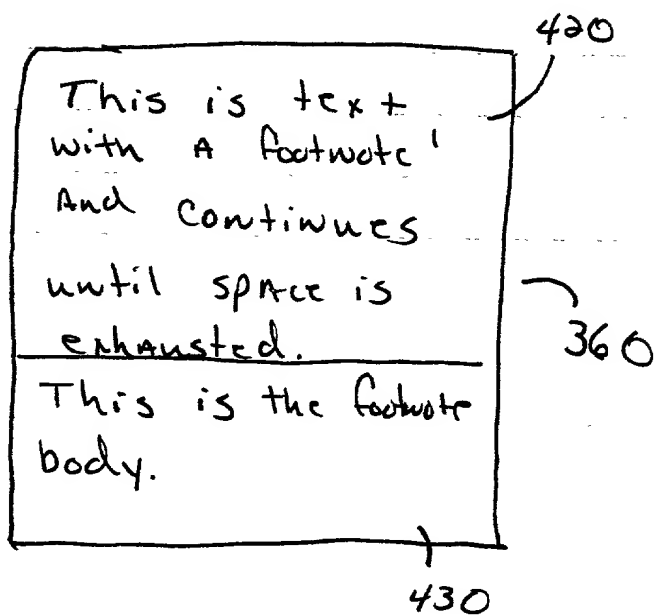 420
This is text
with A footnote¹
And continues
until space is
exhausted.
360
This is the footnote
body.
430